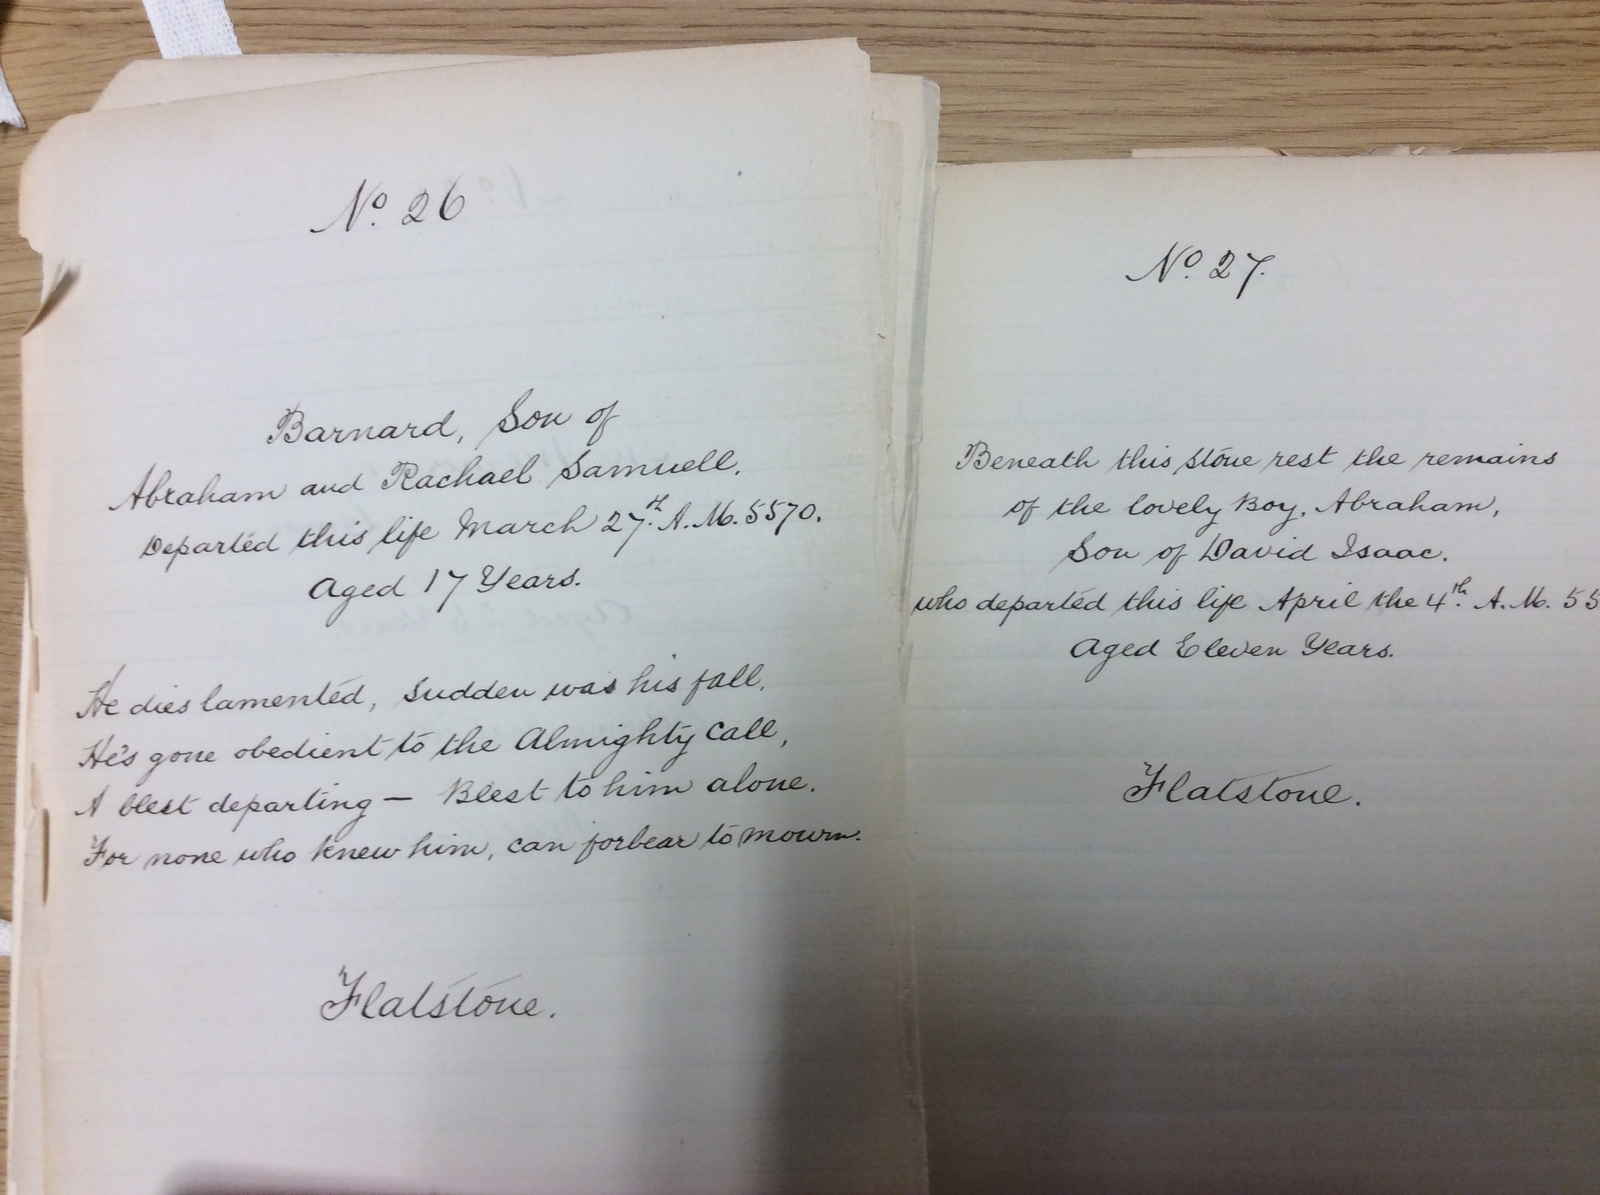 No. 26
Barnard, Son of
Abraham and Rachael Samuell.
Departed this life March 27th. A.M. 5570.
Aged 17 Years.
He dies lamented, sudden was his fall.
He's gone obedient to the Almighty Call,
A blest departing — Blest to him alone.
For none who knew him, can forbear to mourn.
Flatstone.
No. 27.
Beneath this stone rest the remains
of the lovely Boy, Abraham,
Son of David Isaac.
who departed this life April the 4th. A.M. 55
Aged Eleven Years.
Flatstone.